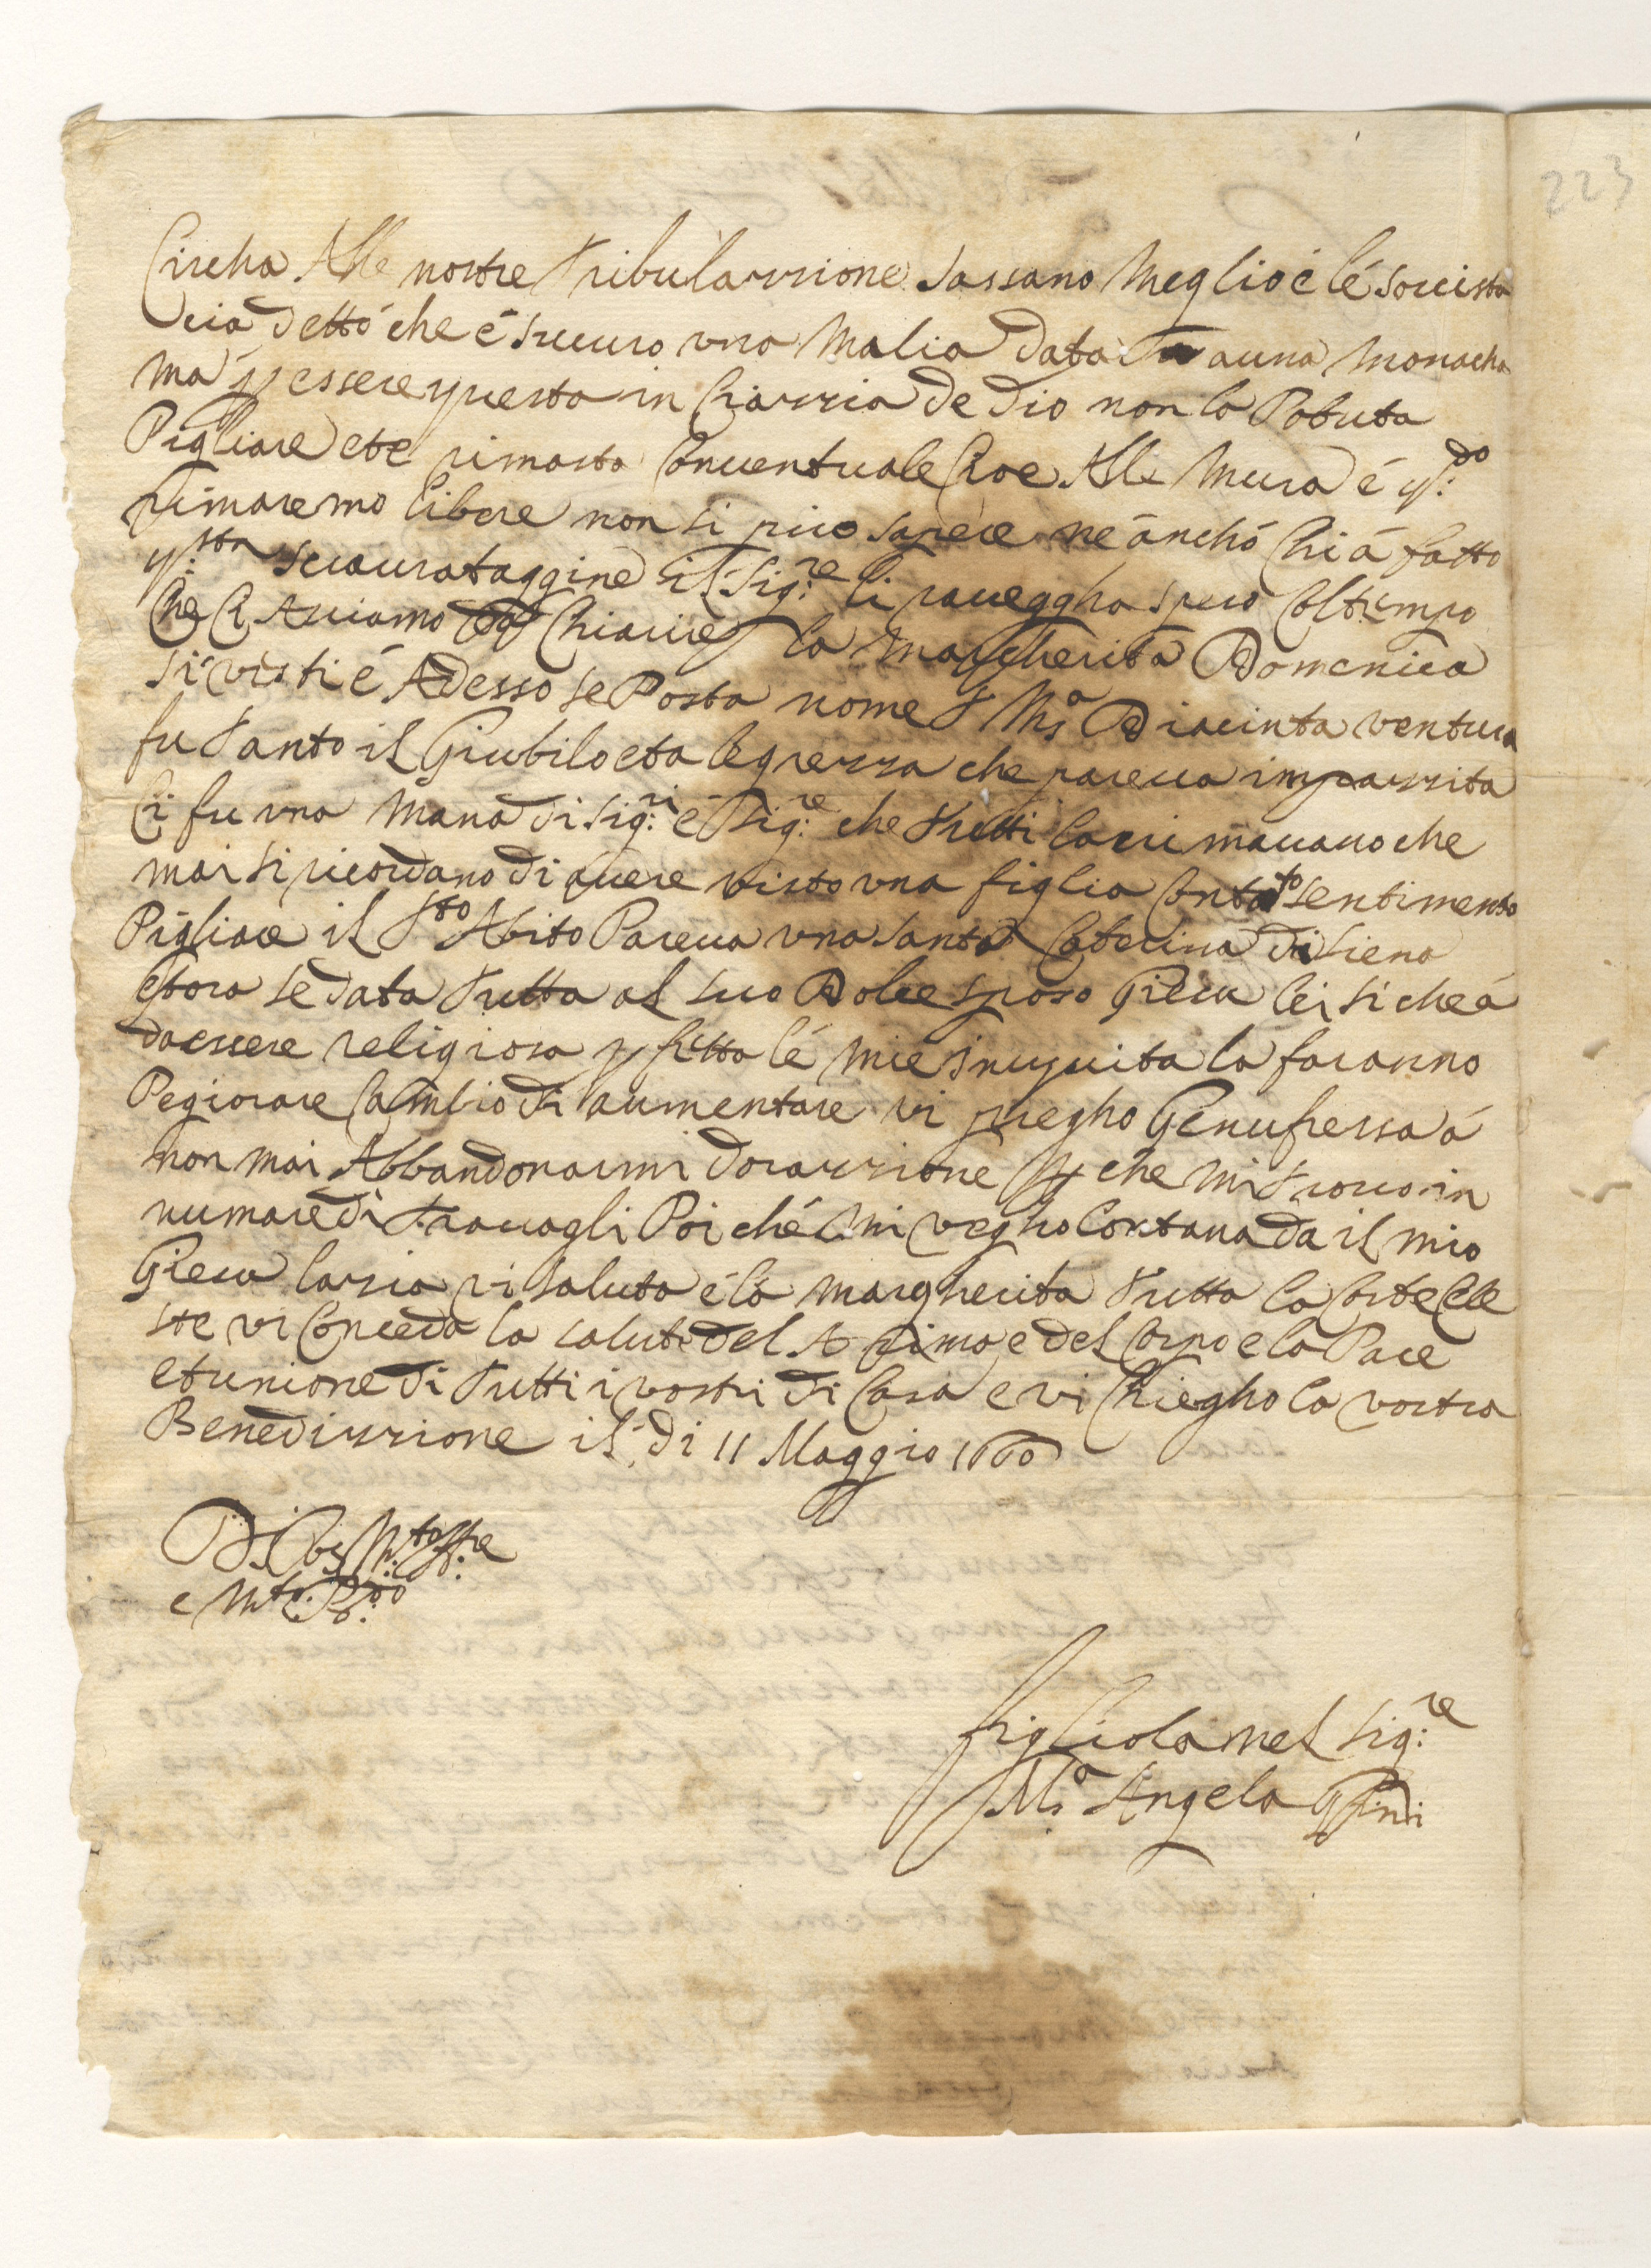 223
Circha Alle nostre Tribulazzione Sassano meglio é lé sorcista
ci a detto che é sicuro una malia data a una monacha
ma p essere questa in Grazzia de dio non la Potuta
Pigliare et é rimasta Conventuale Cioe Alle mura é q:do
rimaremo libere non si puo sapere ne ánchó Chi á fatto
q:sta sciaurataggine il Sig:re li proveggha spero Col tempo
Che Ci Aviamo Chiarire la Margherita Domenica
si visti é Adesso se Posta nome S Ma Diacinta ventura
fu Tanto il Giubilo et alegrezza che pareva impazzita
Ci fu una mana di Sig:ri é Sig:re che Tutti lacrimavano che
mai si ricordano di avere visto una figlia Con tato sentimento
Pigliare il Sto Abito Pareva una Santa Caterina di Siena
et ora se data Tutta al suo Dolce sposo Giesu lei si che á
da essere religiosa p fetta lé mie iniquita la faranno
Pegiorare Cambio di aumentare vi pregho Genuflessa á
non mai Abbandonarmi d orazzione p che mi Trovo in
nu mare di Travagli Poi ché mi vegho lontana da il mio
Giesu la zia vi saluta é la Margherita Tutta la Corte Cele
ste vi Conceda la salute del A nimo, e del Corpo e la Pace
et unione di Tutti i vostri di Casa e vi Chiegho la vostra
Benedizzione il di 11 Maggio 1660
Di V S M:to Ill:re
e M:to R:do
figliola nel Sig:re
S Ma Angela Gini